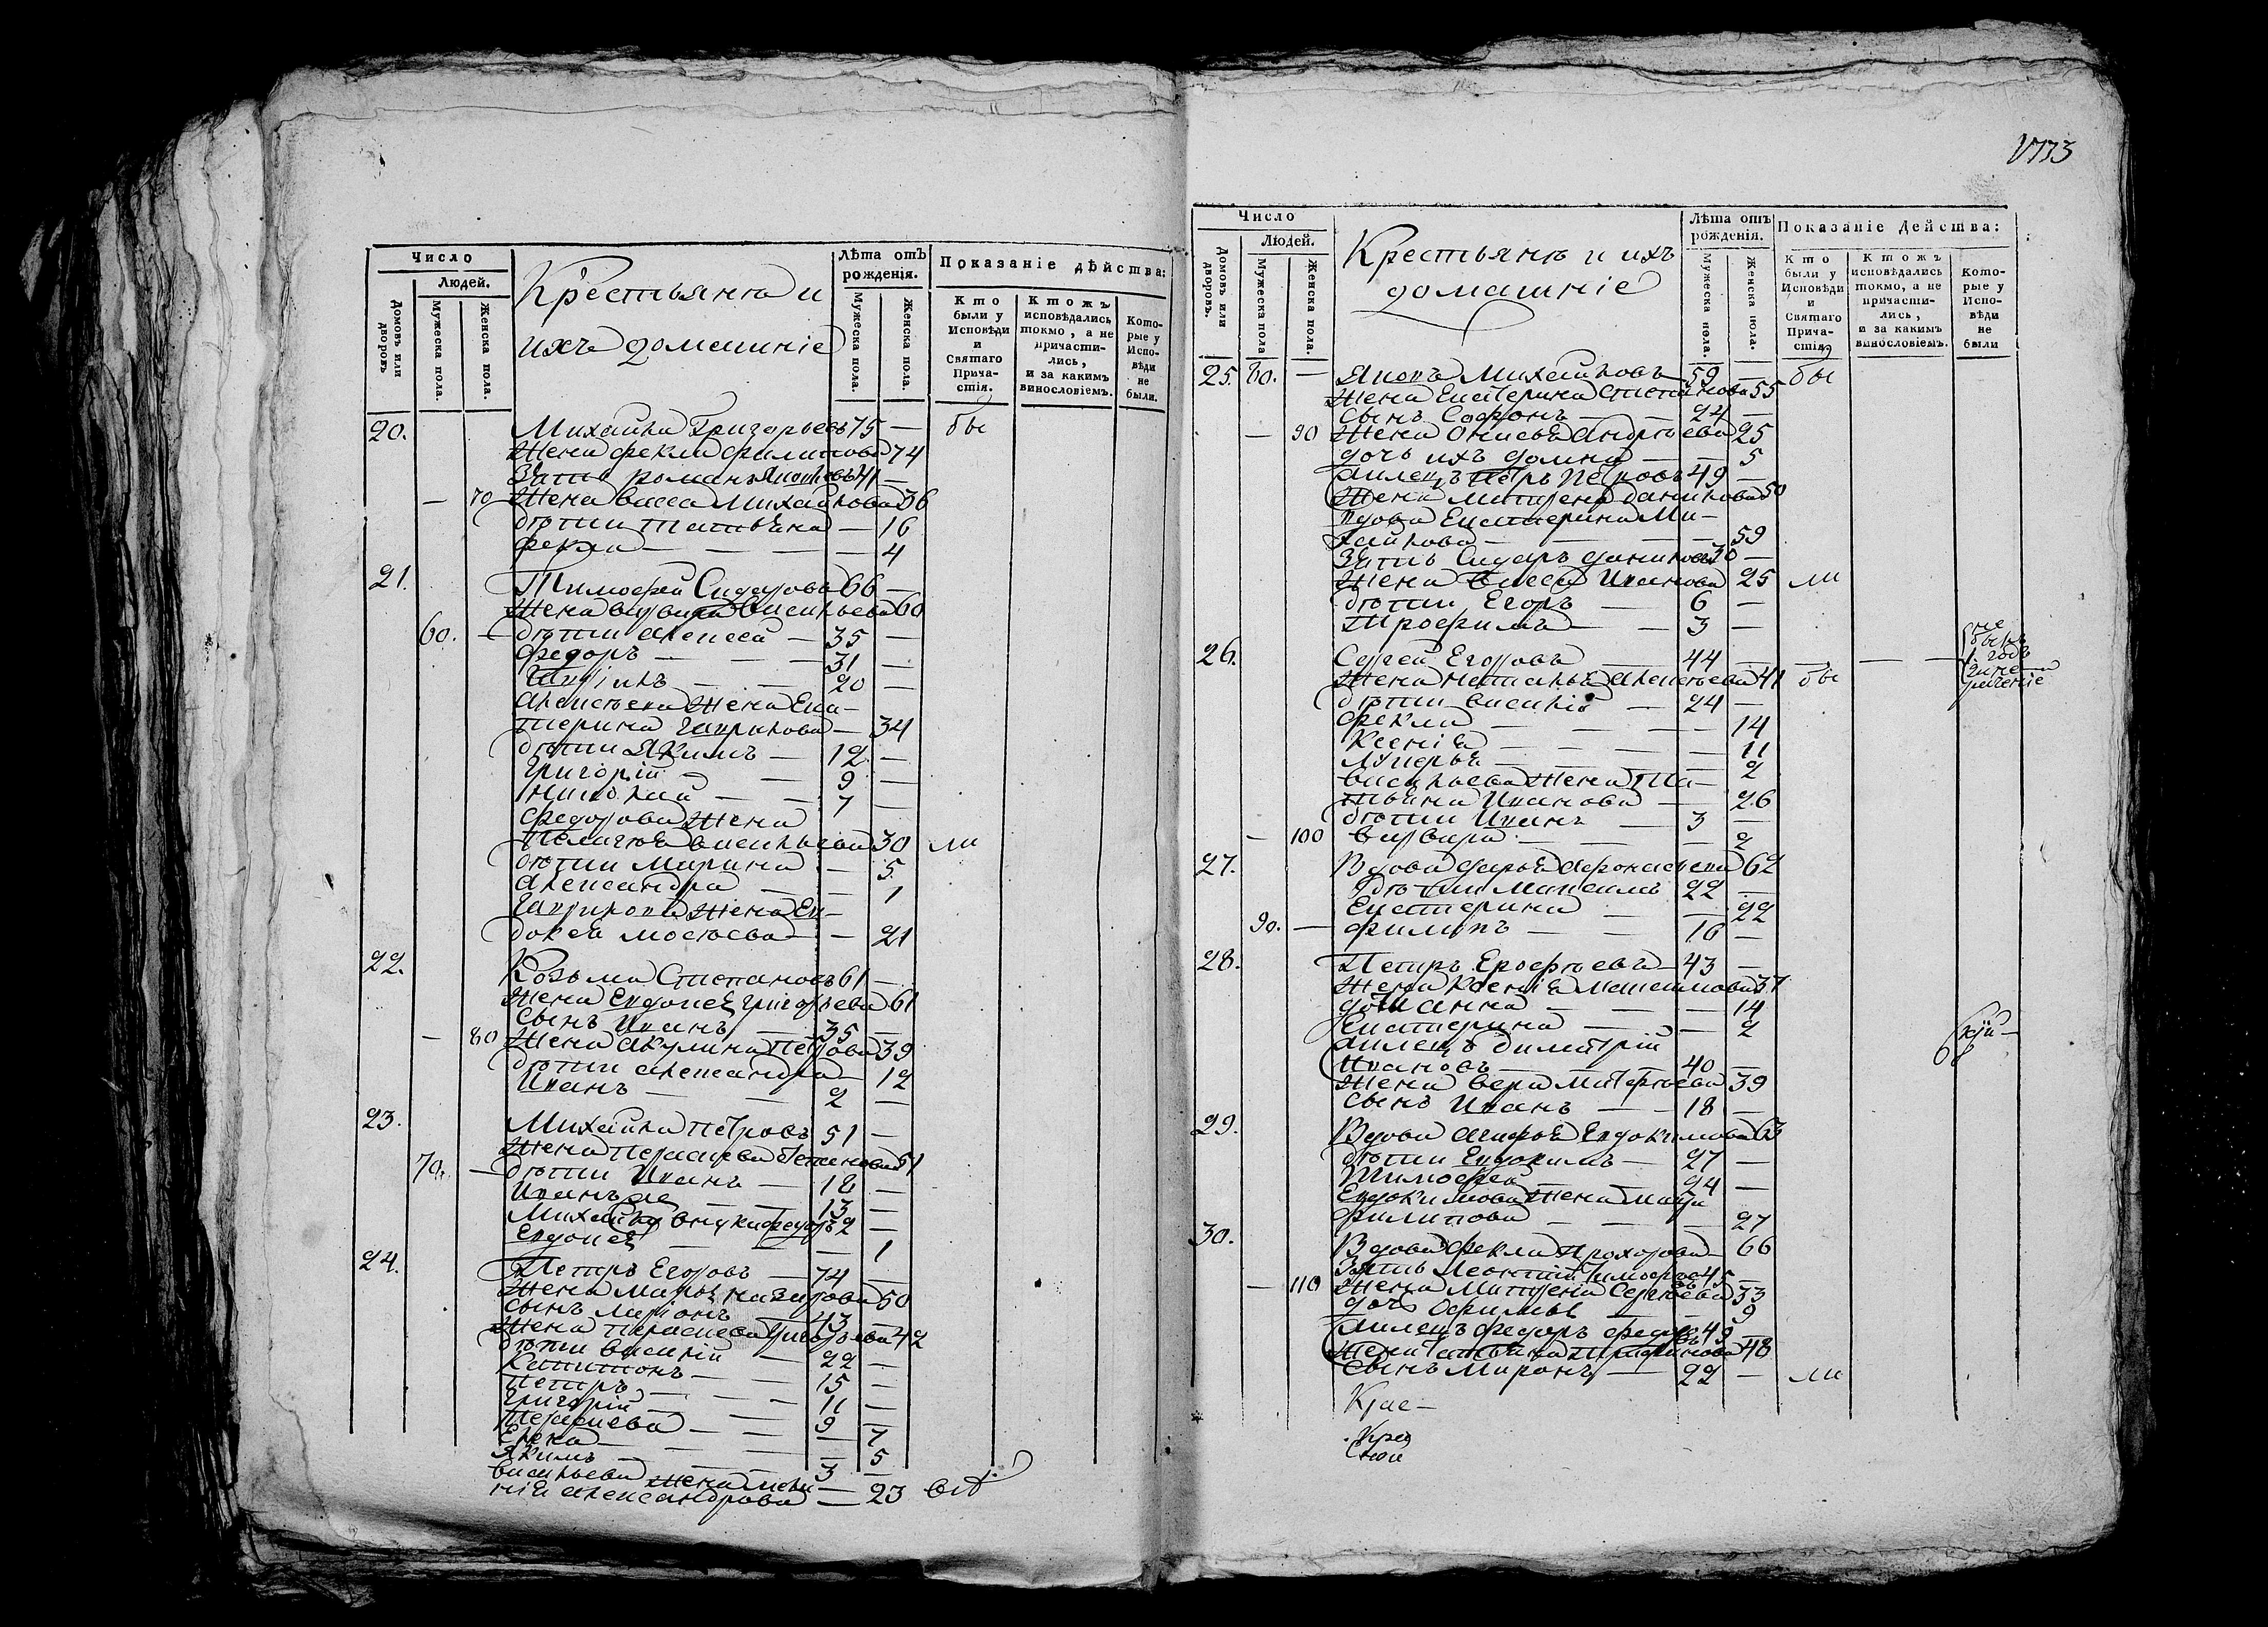 Число
Людей.
Домовъ или дворовъ
Мужеска пола.
Женска пола.
Крестьянѣ и
ихъ домашніе
Лѣта отъ рожденія.
Мужеска пола.
Женска пола.
Показаніе дѣйства:
Кто были у Исповѣди и Святаго Причастія.
Ктожъ исповѣдались токмо, а не причастились, и за какимъ винословіемъ.
Которые у Исповѣди не были.
20. Михайла Григорьевъ 75 — бы
Жена Фекла Филипова 74
Зять Романъ 41 —
— 70 Жена Васса Михайлова 36
дѣти Татьяна — 16
Фекла — — — — 4
21. Тимофей Сидоровъ 66 —
Жена Варвара Васильева 60
60. — дѣти Алексей — 35 —
Федоръ — — — 31 —
— — 20 —
Алексѣева Жена Ека-
терина Гаврилова — 34
дѣти Якимъ — 12 —
Григорій — — 9 —
Николай — — 7 —
Федорова Жена
Пелагѣя Васильева 30 ли
дѣти Марина — 5
Александра — — 1
Гаврилова Жена Ев-
докея Мосѣева — — 21
22. Козьма Степановъ 61 —
Жена Евдокея Григорьева 61
сынъ Иванъ — 35 —
— 80 Жена Акулина Петрова 39
дѣти Александра — 12
Иванъ — — 2 —
23. Михайла Петровъ 51 —
Жена Парасковья Степанова 51
70. — дѣти Иванъ — 18 —
Иванъ же — — 13 —
Михайлы внуки Федоръ 2 —
Евдокея — — — 1
24. Петръ Егоровъ — 74 —
Жена Марья Назарова 50
сынъ Ларіонъ — 43 —
Жена Парасковья Григорьева 42
дѣти Василій — 22 —
Капитонъ — — 15 —
Петръ — — — 11 —
Григорій — — 9 —
Парасковья — — — 7
Елена — — — — 5
Якимъ — — — 3 —
Васильева Жена Мела-
нія Александрова — 23
V773
Число
Людей.
Домовъ или дворовъ.
Мужеска пола
Женска пола.
Крестьянѣ и ихъ
домашніе
Лѣта отъ рожденія.
Мужеска пола.
Женска пола.
Показаніе Действа:
Кто были у Исповѣди и Святаго Причастія
Ктожъ исповѣдались токмо, а не причастились, и за какимъ винословіемъ.
Которые у Исповѣди не были
25. 80. — Яковъ Михайловъ 59 — бы
Жена Екатерина Степанова 55
сынъ Софронъ — — 24 —
— 90 Жена Анисья Андрѣева 25
дочь ихъ Домна — — 5
Петръ Петровъ 49 —
Жена Матрена Данилова 50
Вдова Екатерина Ми-
хайлова — — — 59
Зять Сидоръ Даниловъ 30 —
Жена Васса Иванова 25 ли
дѣти Егоръ — 6 —
Трофимъ — — 3 —
26. Сергей Егоровъ — 44 — — — не былъ
Жена Наталья Алексѣева 41 бы
дѣти Василій — 24 —
Фекла — — — — 14
Ксенія — — — — 11
Лукерья — — — — 2
Васильева Жена Та-
тьяна Иванова — 26
дѣти Иванъ — 3 —
— 100 Варвара — — — 2
27. Вдова Дарья Афонасьева 62
дѣти Максимъ 22 —
Екатерина — — 22
90. — Филипъ — — 16 —
28. Петръ Ерофѣевъ — 43 —
Жена Ксенія Максимова 37
дочь Анна — — — 14
Екатерина — — 2
Димитрій
Ивановъ — — 40 —
Жена Вера Матфѣева 39
сынъ Иванъ — — 18 —
29. Вдова Агафья Евдокимова 63
дѣти Евдокимъ — 27 —
Тимофей — 24 —
Евдокимова Жена
Филипова — — — 27
30. Вдова Фекла Прохорова — 66
Зять Леонтій Тимофѣевъ 45 —
— 110 Жена Матрена Сергѣева 33
дочь — — 9
Федоръ Федоровъ 49 —
Жена 48
сынъ Миронъ — 22 — ли